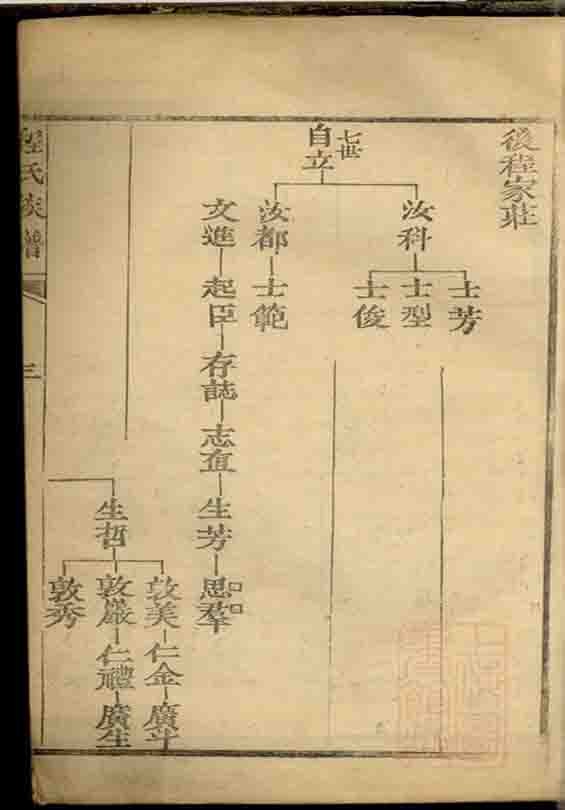 後程家莊
七世
自立
汝科
士芳
士型
士俊
汝都
士範
文進
起臣
存誌
志直
生芳
思羣
生哲
敦美
仁金
廣斗
敦嚴
仁禮
廣生
敦秀
程氏族譜
三